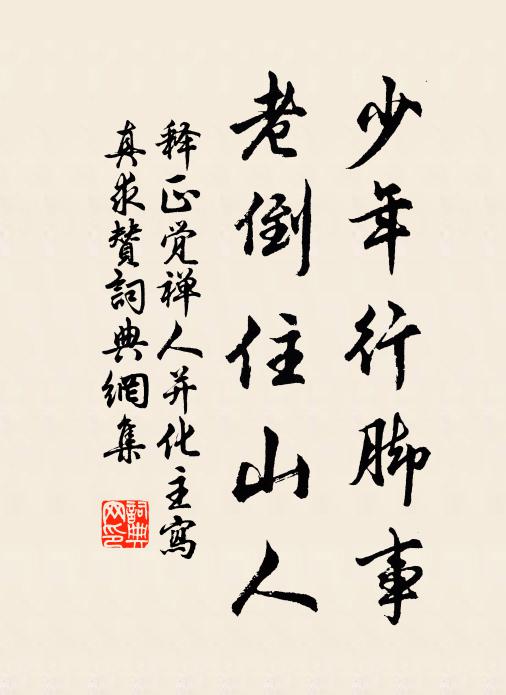 少年行脚事
老倒住山人
释正觉禅人并化主寫
真求赞詞典網集
詞典
网印